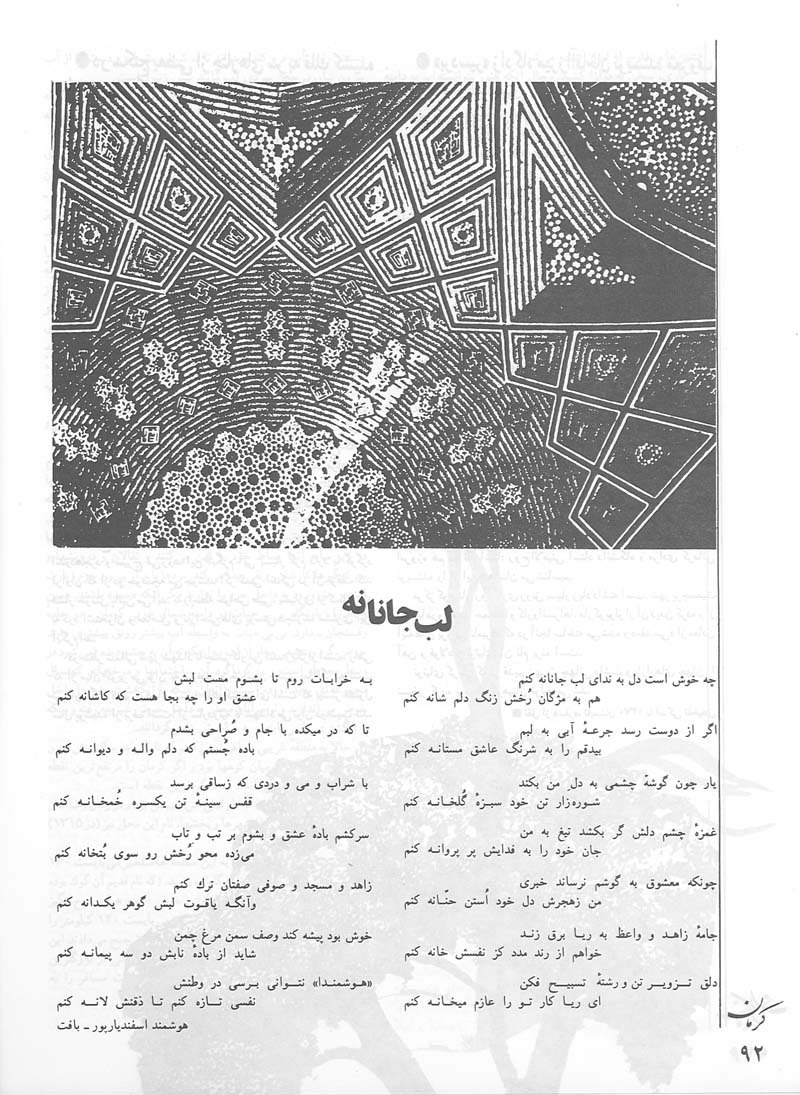 لب جانانه
چه خوش است دل به ندای لب جانانه کنم
هم به مژگان رُخش زنگ دلم شانه کنم
اگر از دوست رسد جرعهٔ آبی به لبم
بیدقم را به شرنگ عاشق مستانه کنم
یار چون گوشهٔ چشمی به دل من بکند
شوره‌زار تن خود سبزهٔ گلخانه کنم
غمزهٔ چشم دلش گر بکشد تیغ به من
جان خود را به فدایش پر پروانه کنم
چونکه معشوق به گوشم نرساند خبری
من زهجرش دل خود اُستن حنّانه کنم
جامهٔ زاهد و واعظ به ریا برق زند
خواهم از رند مدد کز نفسش خانه کنم
دلق تزویر تن و رشتهٔ تسبیح فکن
ای ریا کار تو را عازم میخانه کنم
به خرابات روم تا بشوم مست لبش
عشق او را چه بجا هست که کاشانه کنم
تا که در میکده با جام و صُراحی بشدم
باده جُستم که دلم واله و دیوانه کنم
با شراب و می و دردی که زساقی برسد
قفس سینهٔ تن یکسره خُمخانه کنم
سرکشم بادهٔ عشق و بشوم بر تب و تاب
می‌زده محو رُخش رو سوی بُتخانه کنم
زاهد و مسجد و صوفی صفتان ترك کنم
وآنگه یاقوت لبش گوهر یکدانه کنم
خوش بود پیشه کند وصف سمن مرغ چمن
شاید از بادهٔ نابش دو سه پیمانه کنم
«هوشمندا» نتوانی برسی در وطنش
نفسی تازه کنم تا ذقنش لانه کنم
هوشمند اسفندیارپور ـ بافت
کرمان
۹۲